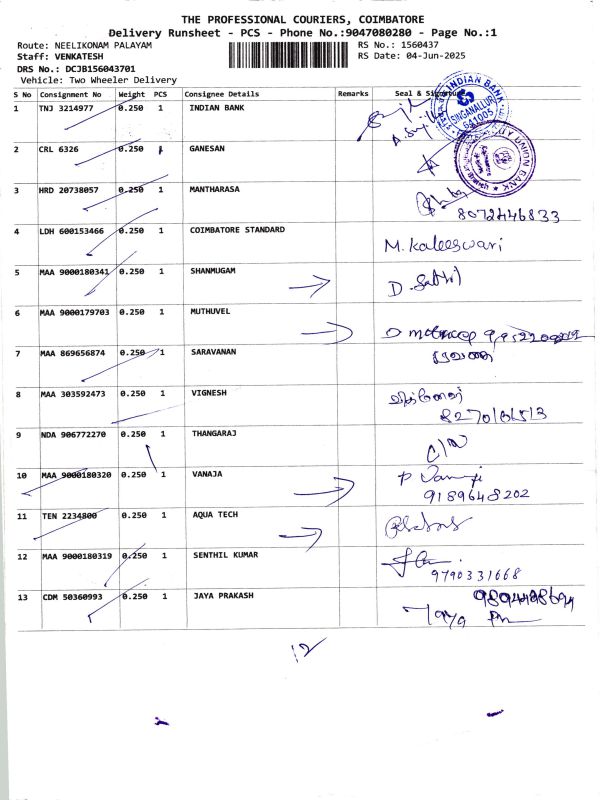 THE PROFESSIONAL COURIERS, COIMBATORE
Delivery Runsheet - PCS - Phone No.:9047080280 - Page No.:1
Route: NEELIKONAM PALAYAM RS No.: 1560437
Staff: VENKATESH RS Date: 04-Jun-2025
DRS No.: DCJB156043701
Vehicle: Two Wheeler Delivery
S No Consignment No Weight PCS Consignee Details Remarks Seal & Signature
INDIAN BANK
SINGANALLUR
641005
1 TNJ 3214977 0.250 1 INDIAN BANK
UNION BANK
2 CRL 6326 0.250 1 GANESAN
3 HRD 20738057 0.250 1 MANTHARASA
8072446833
4 LDH 600153466 0.250 1 COIMBATORE STANDARD M. Kaleeswari
5 MAA 9000180341 0.250 1 SHANMUGAM
6 MAA 9000179703 0.250 1 MUTHUVEL
7 MAA 869656874 0.250 1 SARAVANAN
8 MAA 303592473 0.250 1 VIGNESH
9 NDA 906772270 0.250 1 THANGARAJ
10 MAA 9000180320 0.250 1 VANAJA
9189648202
11 TEN 2234800 0.250 1 AQUA TECH
12 MAA 9000180319 0.250 1 SENTHIL KUMAR
9790331668
13 CDM 50360993 0.250 1 JAYA PRAKASH
12